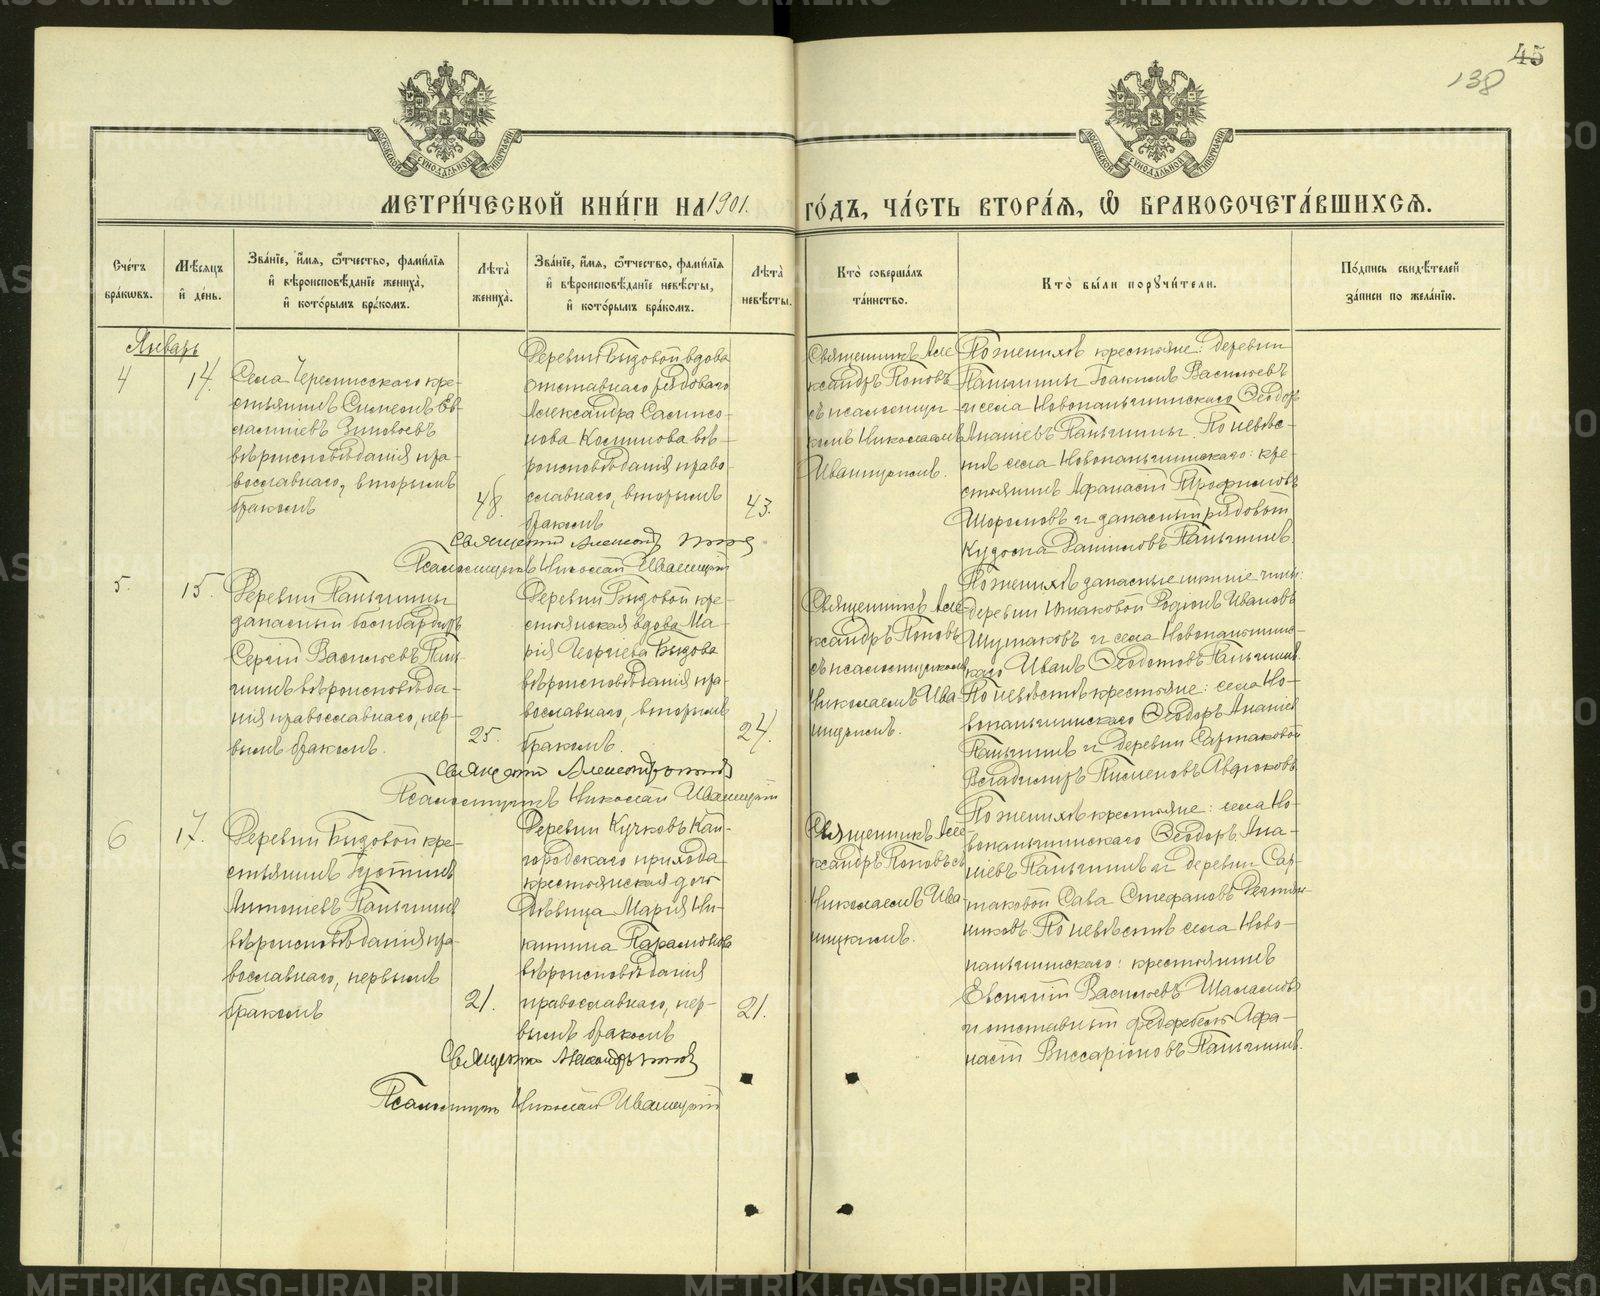 45
138
МОСКОВСКОЙ СѴНОДАЛЬНОЙ ТИПОГРАФІИ
МОСКОВСКОЙ СѴНОДАЛЬНОЙ ТИПОГРАФІИ
МЕТРИ́ЧЕСКОЙ КНИ́ГИ НА 1901. ГО́ДЪ, ЧА́СТЬ ВТОРА́Я, Ѽ БРАКОСОЧЕТА́ВШИХСЯ.
Сче́тъ
бра́кѡвъ.
Мѣ́сяцъ
и҆ де́нь.
Зва́нїе, и҆́мя, ѻ҆́тчество, фами́лїя
и҆ вѣроисповѣ́данїе жениха̀,
и҆ кото́рымъ бра́комъ.
Лѣта̀
жениха̀.
Зва́нїе, и҆́мя, ѻ҆́тчество, фами́лїя
и҆ вѣроисповѣ́данїе невѣ́сты,
и҆ кото́рымъ бра́комъ.
Лѣта̀
невѣ́сты.
Кто̀ соверша́лъ
та́инство.
Кто̀ бы́ли порꙋчи́тели.
По́дпись свидѣ́телей
за́писи по жела́нїю.
Январь
4
14.
Села Черемисскаго кре-
стьянинъ Симеонъ Ев-
Зиновьевъ
вѣроисповѣданія пра-
вославнаго, вторымъ
бракомъ
48.
Деревни Быдовой вдова
отставнаго рядоваго
Александра Самисо-
нова Косминова вѣ-
роисповѣданія право-
славнаго, вторымъ
бракомъ
43.
Священникъ Але-
ксандръ Поповъ
съ псаломщи-
комъ Николаемъ
Иваницкимъ.
По женихѣ крестьяне: деревни
Паньшины Іоакимъ Васильевъ
и села Новопаньшинскаго Ѳеодоръ
Ананьевъ Паньшины. По невѣс-
тѣ села Новопаньшинскаго: кре-
стьянинъ Афанасій Трофимовъ
и запасный рядовый
Даніиловъ Паньшинъ.
Священникъ Александръ Поповъ
Псаломщикъ Николай Иваницкій
5.
15.
Деревни Паньшины
запасный бомбардиръ
Сергій Васильевъ Пань-
шинъ вѣроисповѣда-
нія православнаго, пер-
вымъ бракомъ.
25.
Деревни Быдовой кре-
стьянская вдова Ма-
рія Георгіева Быдова
вѣроисповѣданія пра-
вославнаго, вторымъ
бракомъ.
24.
Священникъ Але-
ксандръ Поповъ
съ псаломщикомъ
Николаемъ Ива-
ницкимъ.
По женихѣ запасные нижніе чины:
деревни Родіонъ Ивановъ
Шутаковъ и села Новопаньшинс-
каго Иванъ Ѳеодотовъ Паньшинъ.
По невѣстѣ крестьяне: села Но-
вопаньшинскаго Ѳеодоръ Ананіевъ
Паньшинъ и деревни Сартаковой
Владимиръ Пименовъ Авдюковъ.
Священникъ Александръ Поповъ
Псаломщикъ Николай Иваницкій
6
17.
Деревни Быдовой кре-
стьянинъ Іустинъ
Антоньевъ Паньшинъ
вѣроисповѣданія пра-
вославнаго, первымъ
бракомъ
21.
Деревни Кучковъ Кай-
городскаго прихода
крестьянская дочь
дѣвица Марія Ни-
китина Парамонова
вѣроисповѣданія
православнаго, пер-
вымъ бракомъ
21.
Священникъ Але-
ксандръ Поповъ съ
Николаемъ Ива-
ницкимъ.
По женихѣ крестьяне: села Но-
вопаньшинскаго Ѳеодоръ Ана-
ніевъ Паньшинъ и деревни Сар-
таковой Сава Стефановъ
По невѣстѣ села Ново-
паньшинскаго: крестьянинъ
Евгеній Васильевъ Шаламовъ
и отставный фельдфебель Афа-
насій Виссаріоновъ Паньшинъ.
Священникъ Александръ Поповъ
Псаломщикъ Николай Иваницкій
METRIKI.GASO-URAL.RU